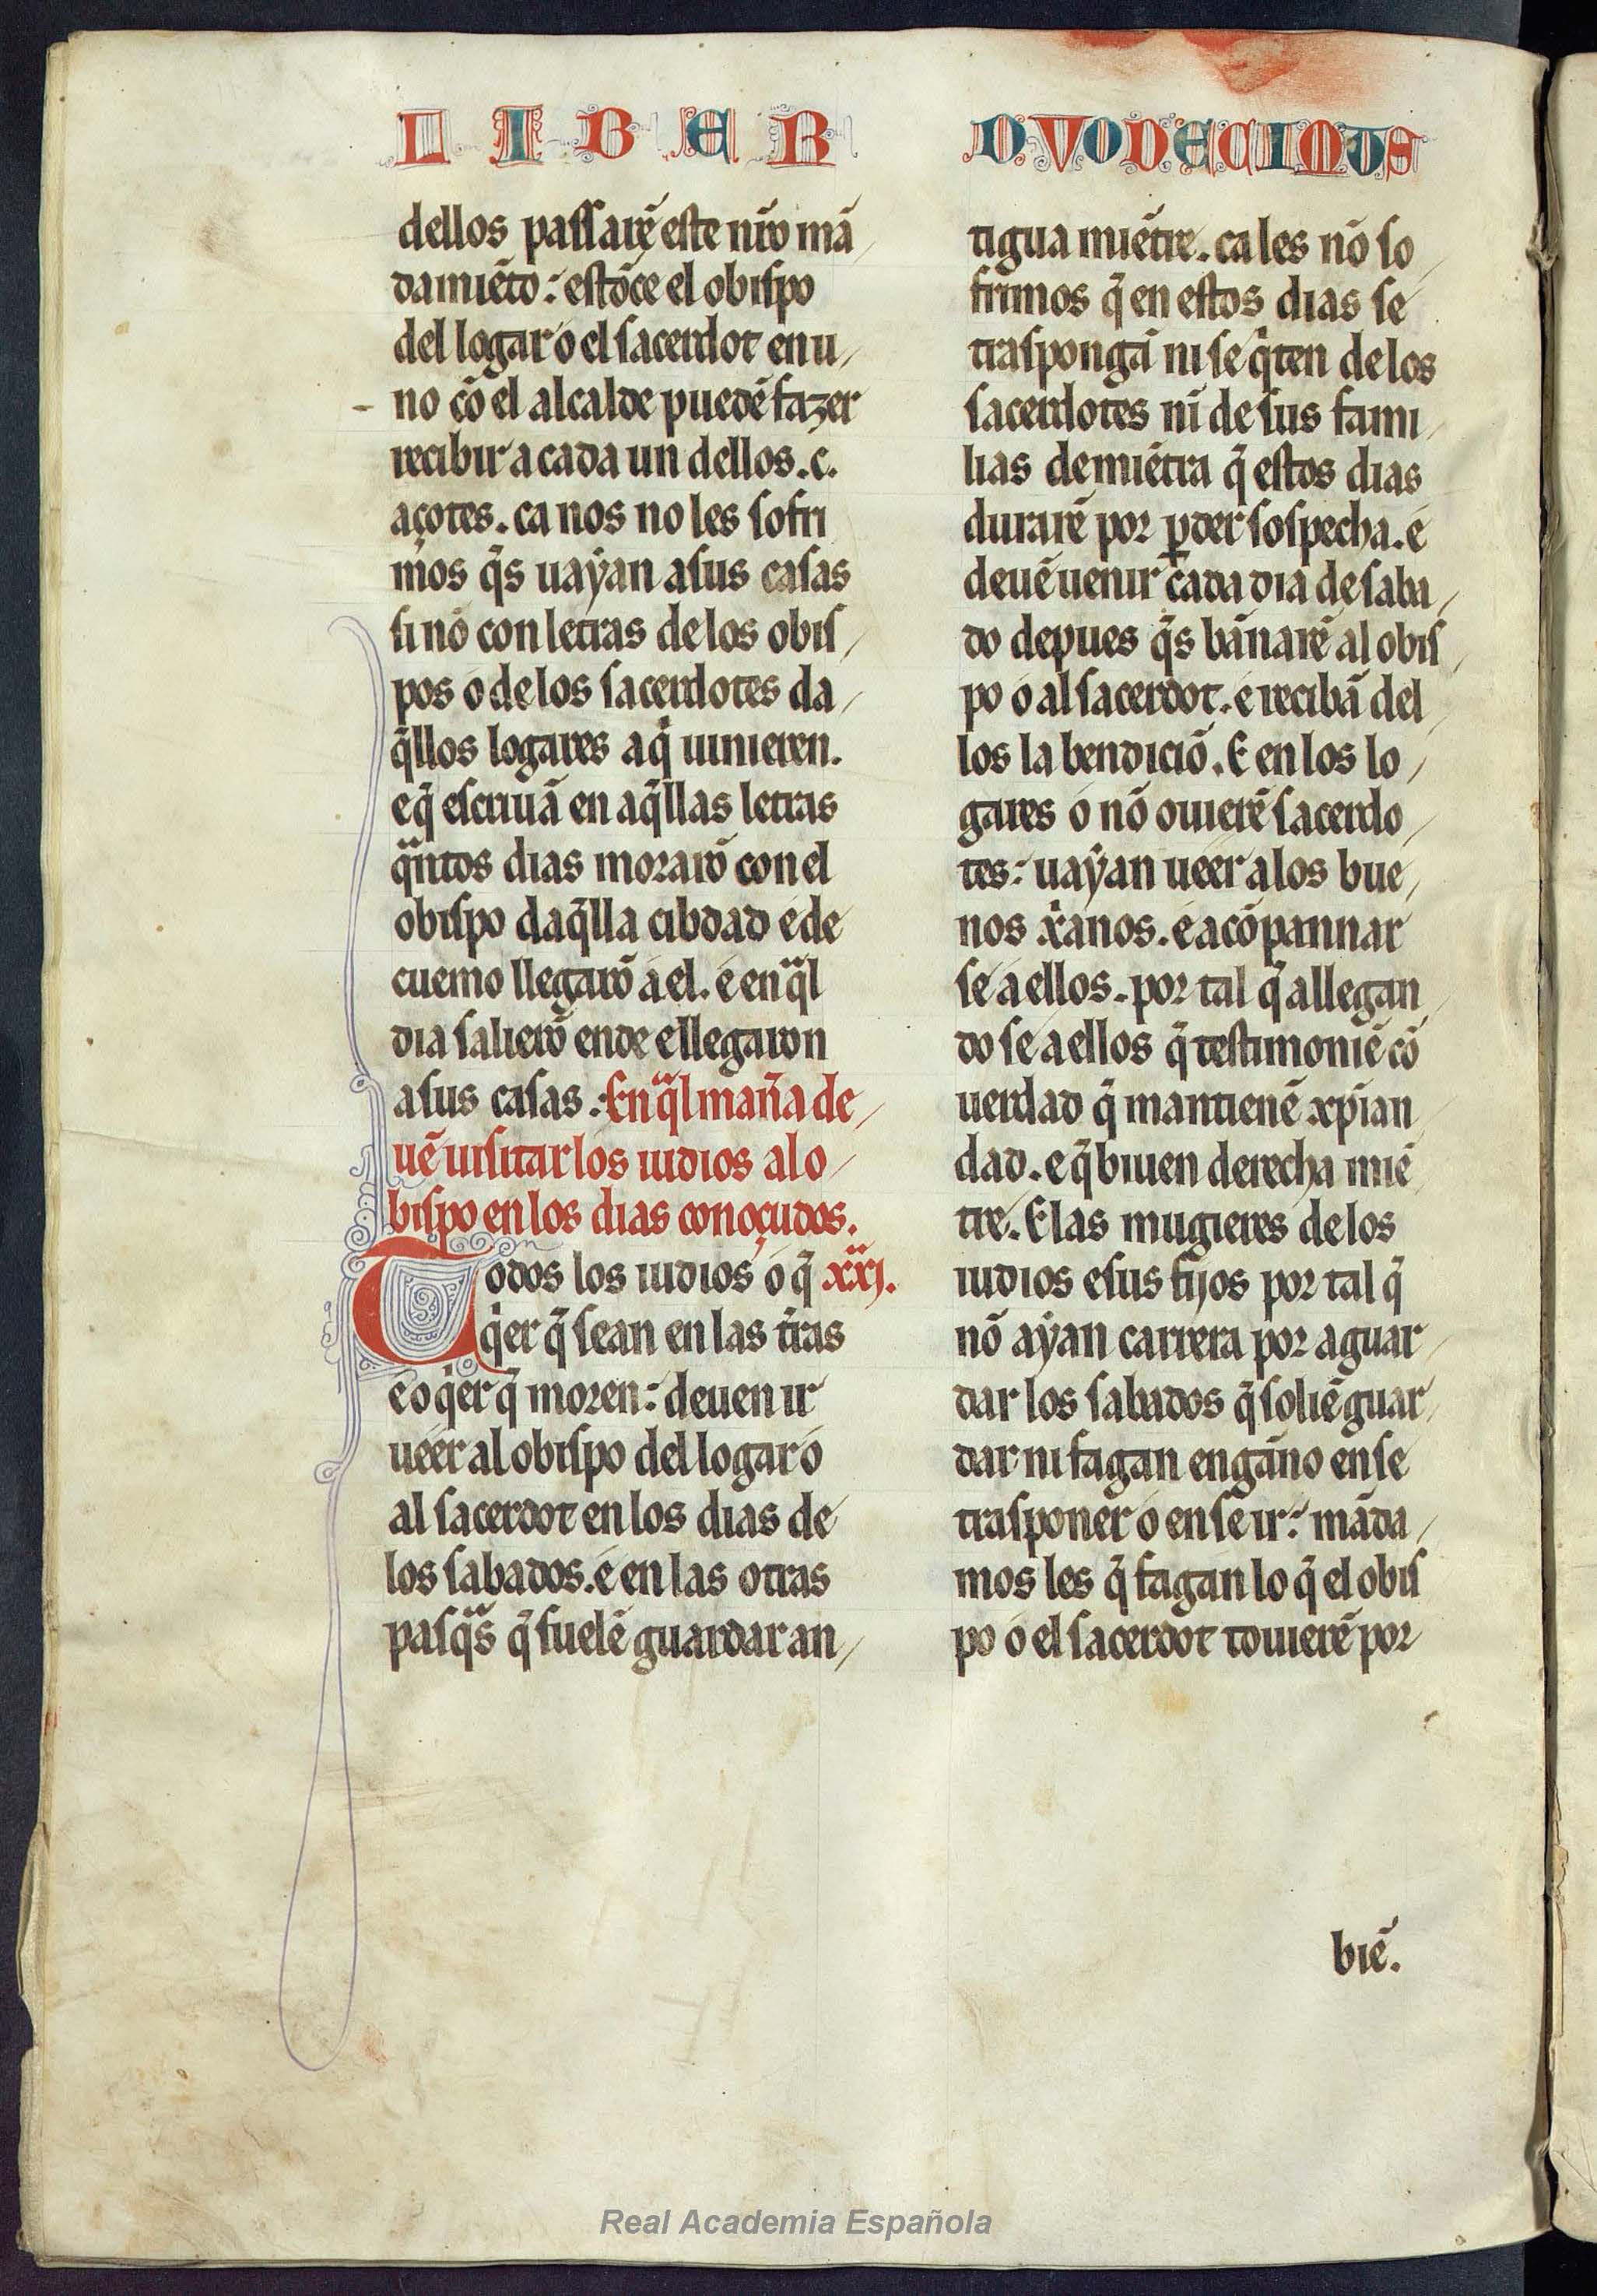 LIBER DVODECIMUS
dellos passarẽ este nr̃o mã
damiẽto: estõce el obispo
del logar o el sacerdot en u
no cõ el alcalde puedẽ fazer
recibir a cada un dellos .c.
açotes. ca nos no les sofri
mos q̃s uaẏan a sus casas
si nõ con letras de los obis
pos o de los sacerdotes da
q̃llos logares a q̃ uinieren.
e q̃ escriuã en aq̃llas letras
q̃ntos dias morarõ con el
obispo daq̃lla cibdad é de
cuemo llegarõ a el. é en q̃l
dia salierõ ende e llegaron
a sus casas: En q̃l maña de
uẽ uisitar los iudios al o
bispo en los dias conoçudos.
Todos los iudios ó q̃ xxj.
q̃er q̃ sean en las tr̃as
e o q̃er q̃ moren: deuen ir
ueer al obispo del logar o
al sacerdot en los dias de
los sabados. é en las otras
pasq̃s q̃ suelẽ guardar an
tigua miẽtre. ca les nõ so
frimos q̃ en estos dias se
traspongã ni se q̃ten de los
sacerdotes ni de sus fami
lias demiẽtra q̃ estos dias
durarẽ por ꝑder sospecha. é
deuẽ uenir cada dia de saba
do depues q̃s bãnarẽ al obis
po o al sacerdot. é recibã del
los la bendiciõ. E en los lo
gares ó nõ ouierẽ sacerdo
tes: uaẏan ueer a los bue
nos xr̃anos. é acõpannar
se a ellos. por tal q̃ allegan
do se a ellos q̃ testimoniẽ cõ
uerdad q̃ mantienẽ xp̃ian
dad. e q̃ biuen derecha miẽ
tre. E las mugieres de los
iudios e sus fijos por tal q̃
nõ aẏan carrera por aguar
dar los sabados q̃ soliẽ guar
dar ni fagan engãno en se
trasponer o en se ir: mãda
mos les q̃ fagan lo q̃ el obis
po o el sacerdot touierẽ por
biẽ.
Real Academia Española